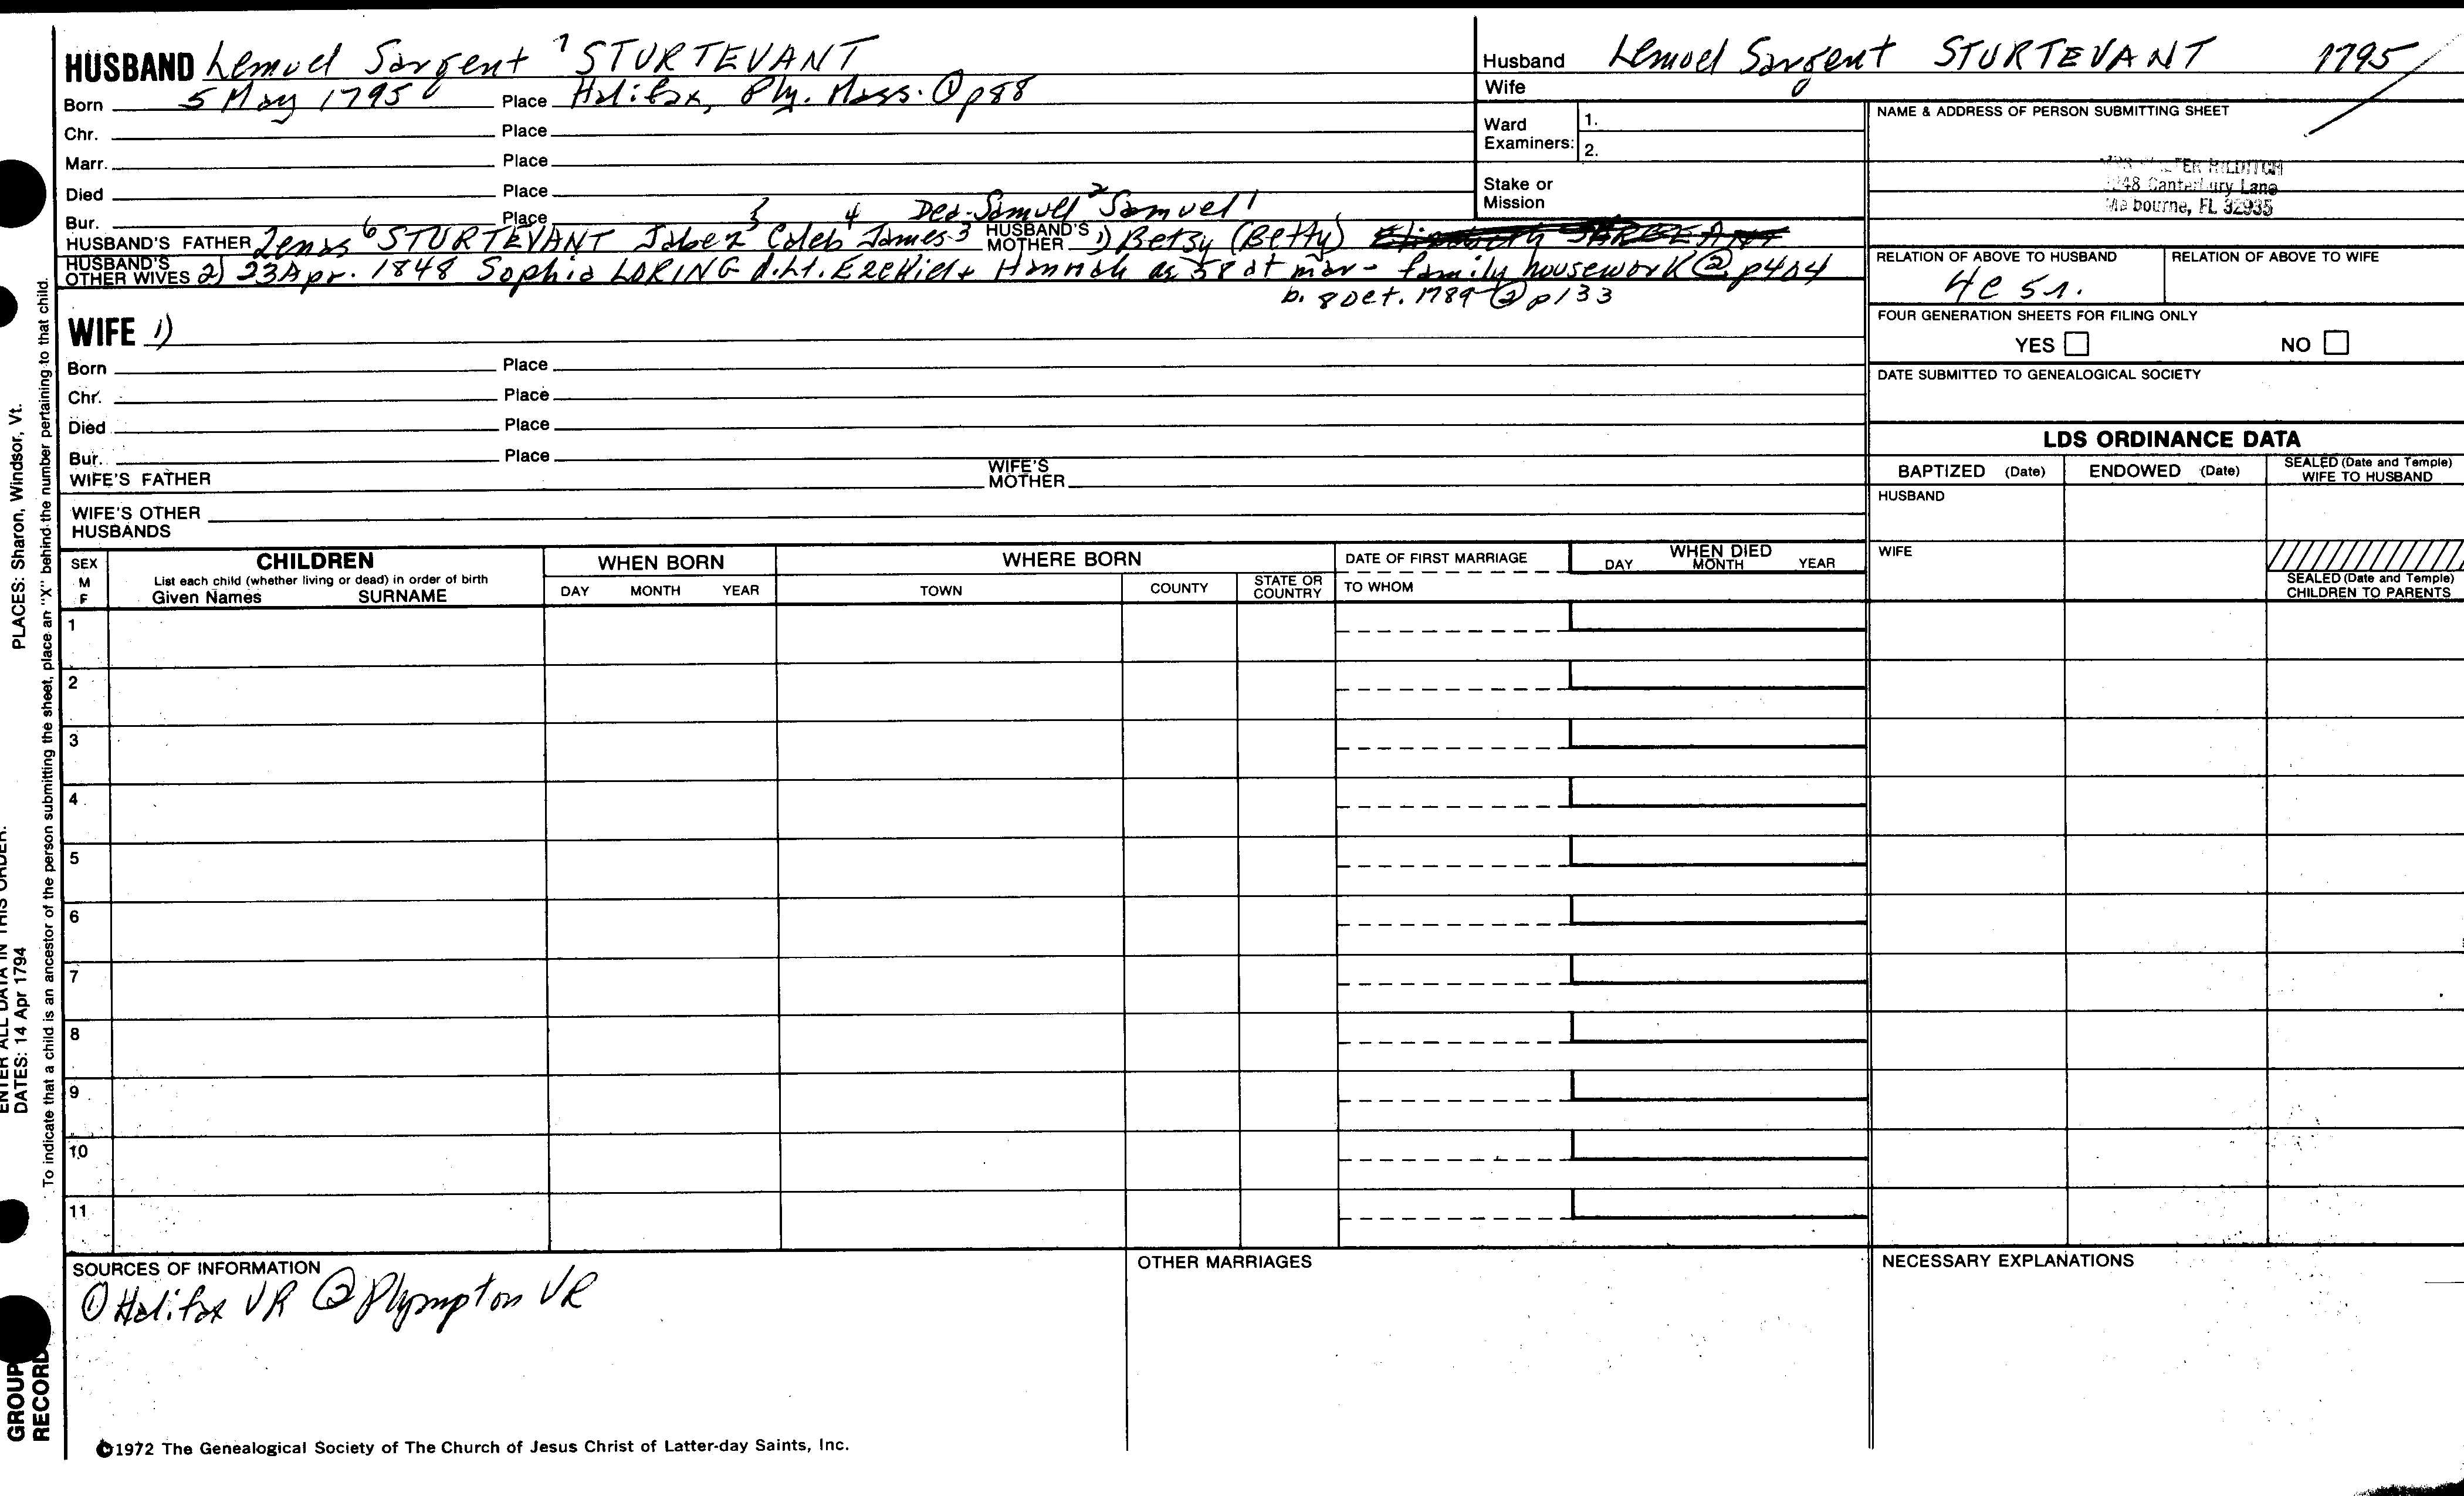 HUSBAND Lemuel Sargent 7 STURTEVANT
Born 5 May 1795 Place Halifax, Ply. Mass. ① p88
Chr. Place
Marr. Place
Died Place
Bur. Place
5 4 Dea. Samuel 2 Samuel 1
HUSBAND'S FATHER Zenas 6 STURTEVANT Jabez Caleb James 3 HUSBAND'S MOTHER 1) Betsy (Betty) Elizabeth SARGEANT
HUSBAND'S OTHER WIVES 2) 23 Apr. 1848 Sophia LORING d. Lt. Ezekiel + Hannah ae 58 at mar - family housework ② p404
b. 8 Oct. 1789 ② p133
WIFE 1)
Born Place
Chr. Place
Died Place
Bur. Place
WIFE'S FATHER WIFE'S MOTHER
WIFE'S OTHER HUSBANDS
Husband Lemuel Sargent STURTEVANT 1795
Wife
Ward Examiners: 1.
2.
Stake or Mission
NAME & ADDRESS OF PERSON SUBMITTING SHEET
HILDITCH
Canterbury Lane
Melbourne, FL 32935
RELATION OF ABOVE TO HUSBAND RELATION OF ABOVE TO WIFE
4c 5r.
FOUR GENERATION SHEETS FOR FILING ONLY
YES NO
DATE SUBMITTED TO GENEALOGICAL SOCIETY
LDS ORDINANCE DATA
BAPTIZED (Date) ENDOWED (Date) SEALED (Date and Temple) WIFE TO HUSBAND
HUSBAND
WIFE
SEALED (Date and Temple) CHILDREN TO PARENTS
SEX M F CHILDREN WHEN BORN WHERE BORN DATE OF FIRST MARRIAGE WHEN DIED
List each child (whether living or dead) in order of birth
Given Names SURNAME DAY MONTH YEAR TOWN COUNTY STATE OR COUNTRY TO WHOM DAY MONTH YEAR
1
2
3
4
5
6
7
8
9
10
11
SOURCES OF INFORMATION
① Halifax VR ② Plympton VR
OTHER MARRIAGES
NECESSARY EXPLANATIONS
©1972 The Genealogical Society of The Church of Jesus Christ of Latter-day Saints, Inc.
ENTER ALL DATA IN THIS ORDER:
DATES: 14 Apr 1794 PLACES: Sharon, Windsor, Vt.
To indicate that a child is an ancestor of the person submitting the sheet, place an "X" behind the number pertaining to that child.
GROUP
RECORD